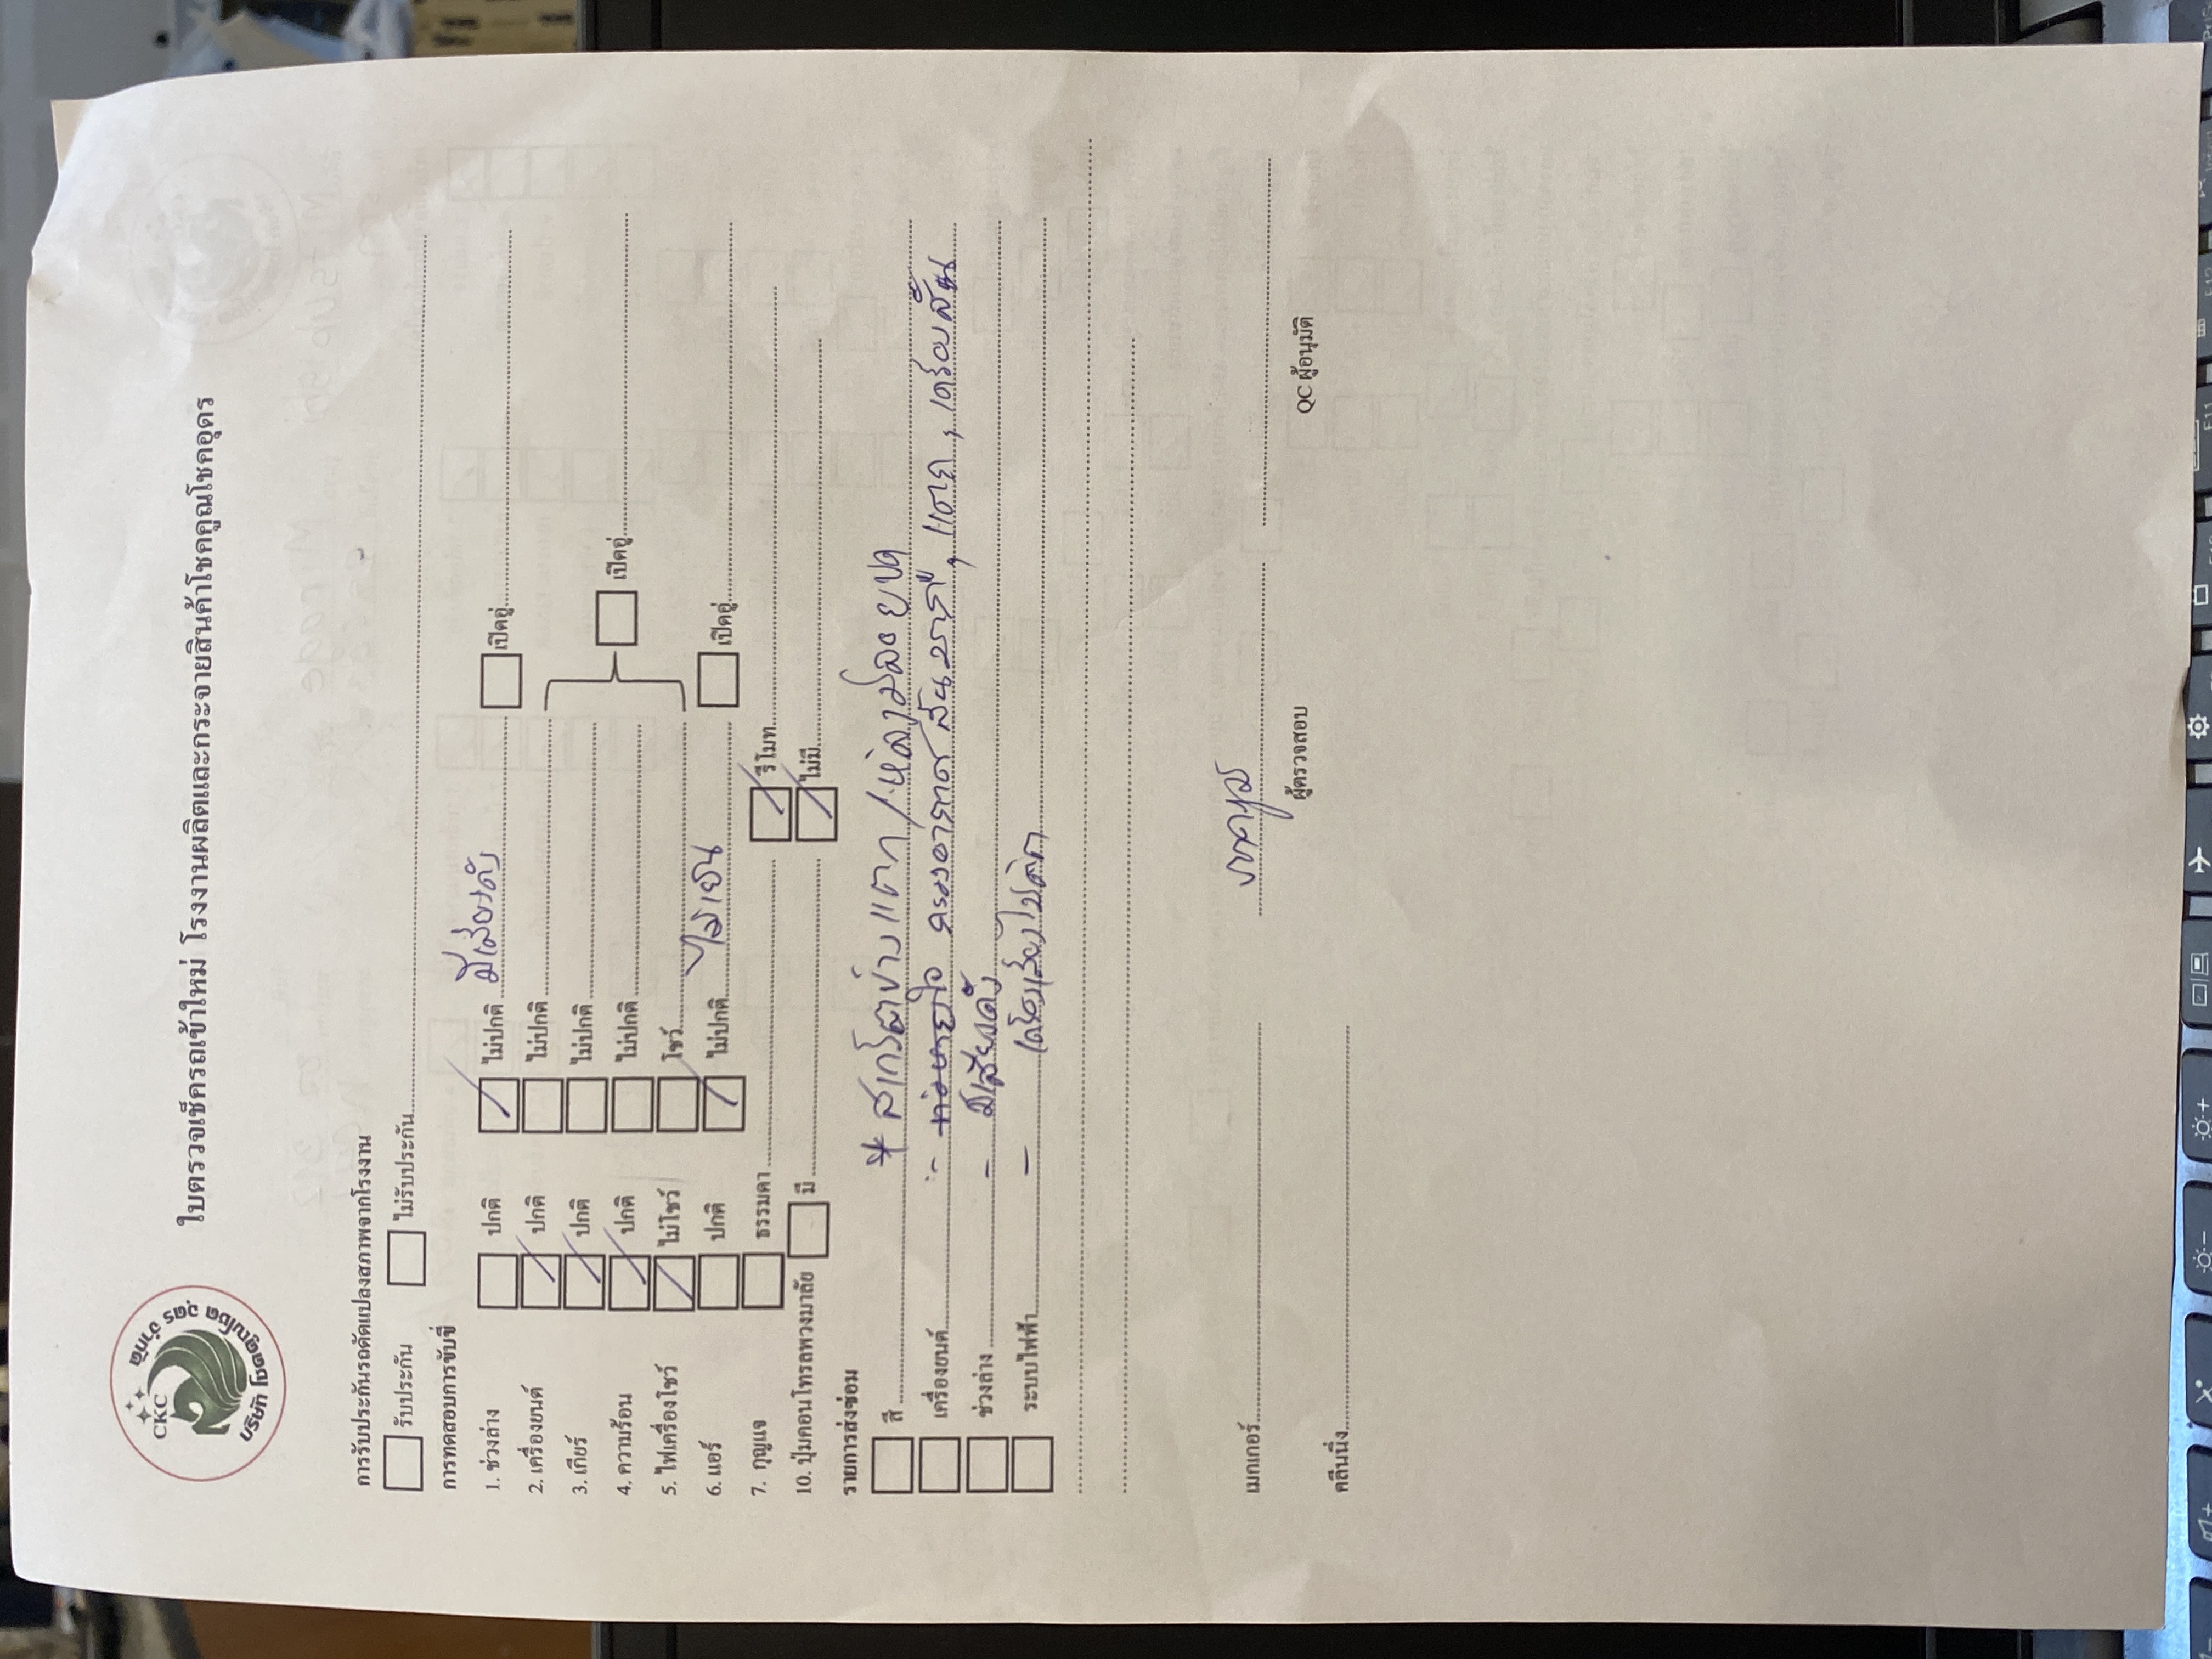 CKC
บริษัท โชคคูณโชค อุดร จำกัด
ใบตรวจเช็ครถเข้าใหม่ โรงงานผลิตและกระจายสินค้าโชคคูณโชคอุดร
การรับประกันรถดัดแปลงสภาพจากโรงงาน
รับประกัน ไม่รับประกัน
การทดสอบการขับขี่
1. ช่วงล่าง ปกติ ไม่ปกติ มีเสียงดัง เปิดอู่
2. เครื่องยนต์ ปกติ ไม่ปกติ
3. เกียร์ ปกติ ไม่ปกติ เปิดอู่
4. ความร้อน ปกติ ไม่ปกติ
5. ไฟเครื่องโชว์ ไม่โชว์ โชว์
6. แอร์ ปกติ ไม่ปกติ ไม่เย็น เปิดอู่
7. กุญแจ ธรรมดา รีโมท
10. ปุ่มคอนโทรลพวงมาลัย มี ไม่มี
รายการส่งซ่อม
สี * สเกิร์ตข้างแตก /
เครื่องยนต์ :- แตก
ช่วงล่าง - มีเสียงดัง
ระบบไฟฟ้า -
เมกเกอร์ ผู้ตรวจสอบ QC ผู้อนุมัติ
คลีนนิ่ง